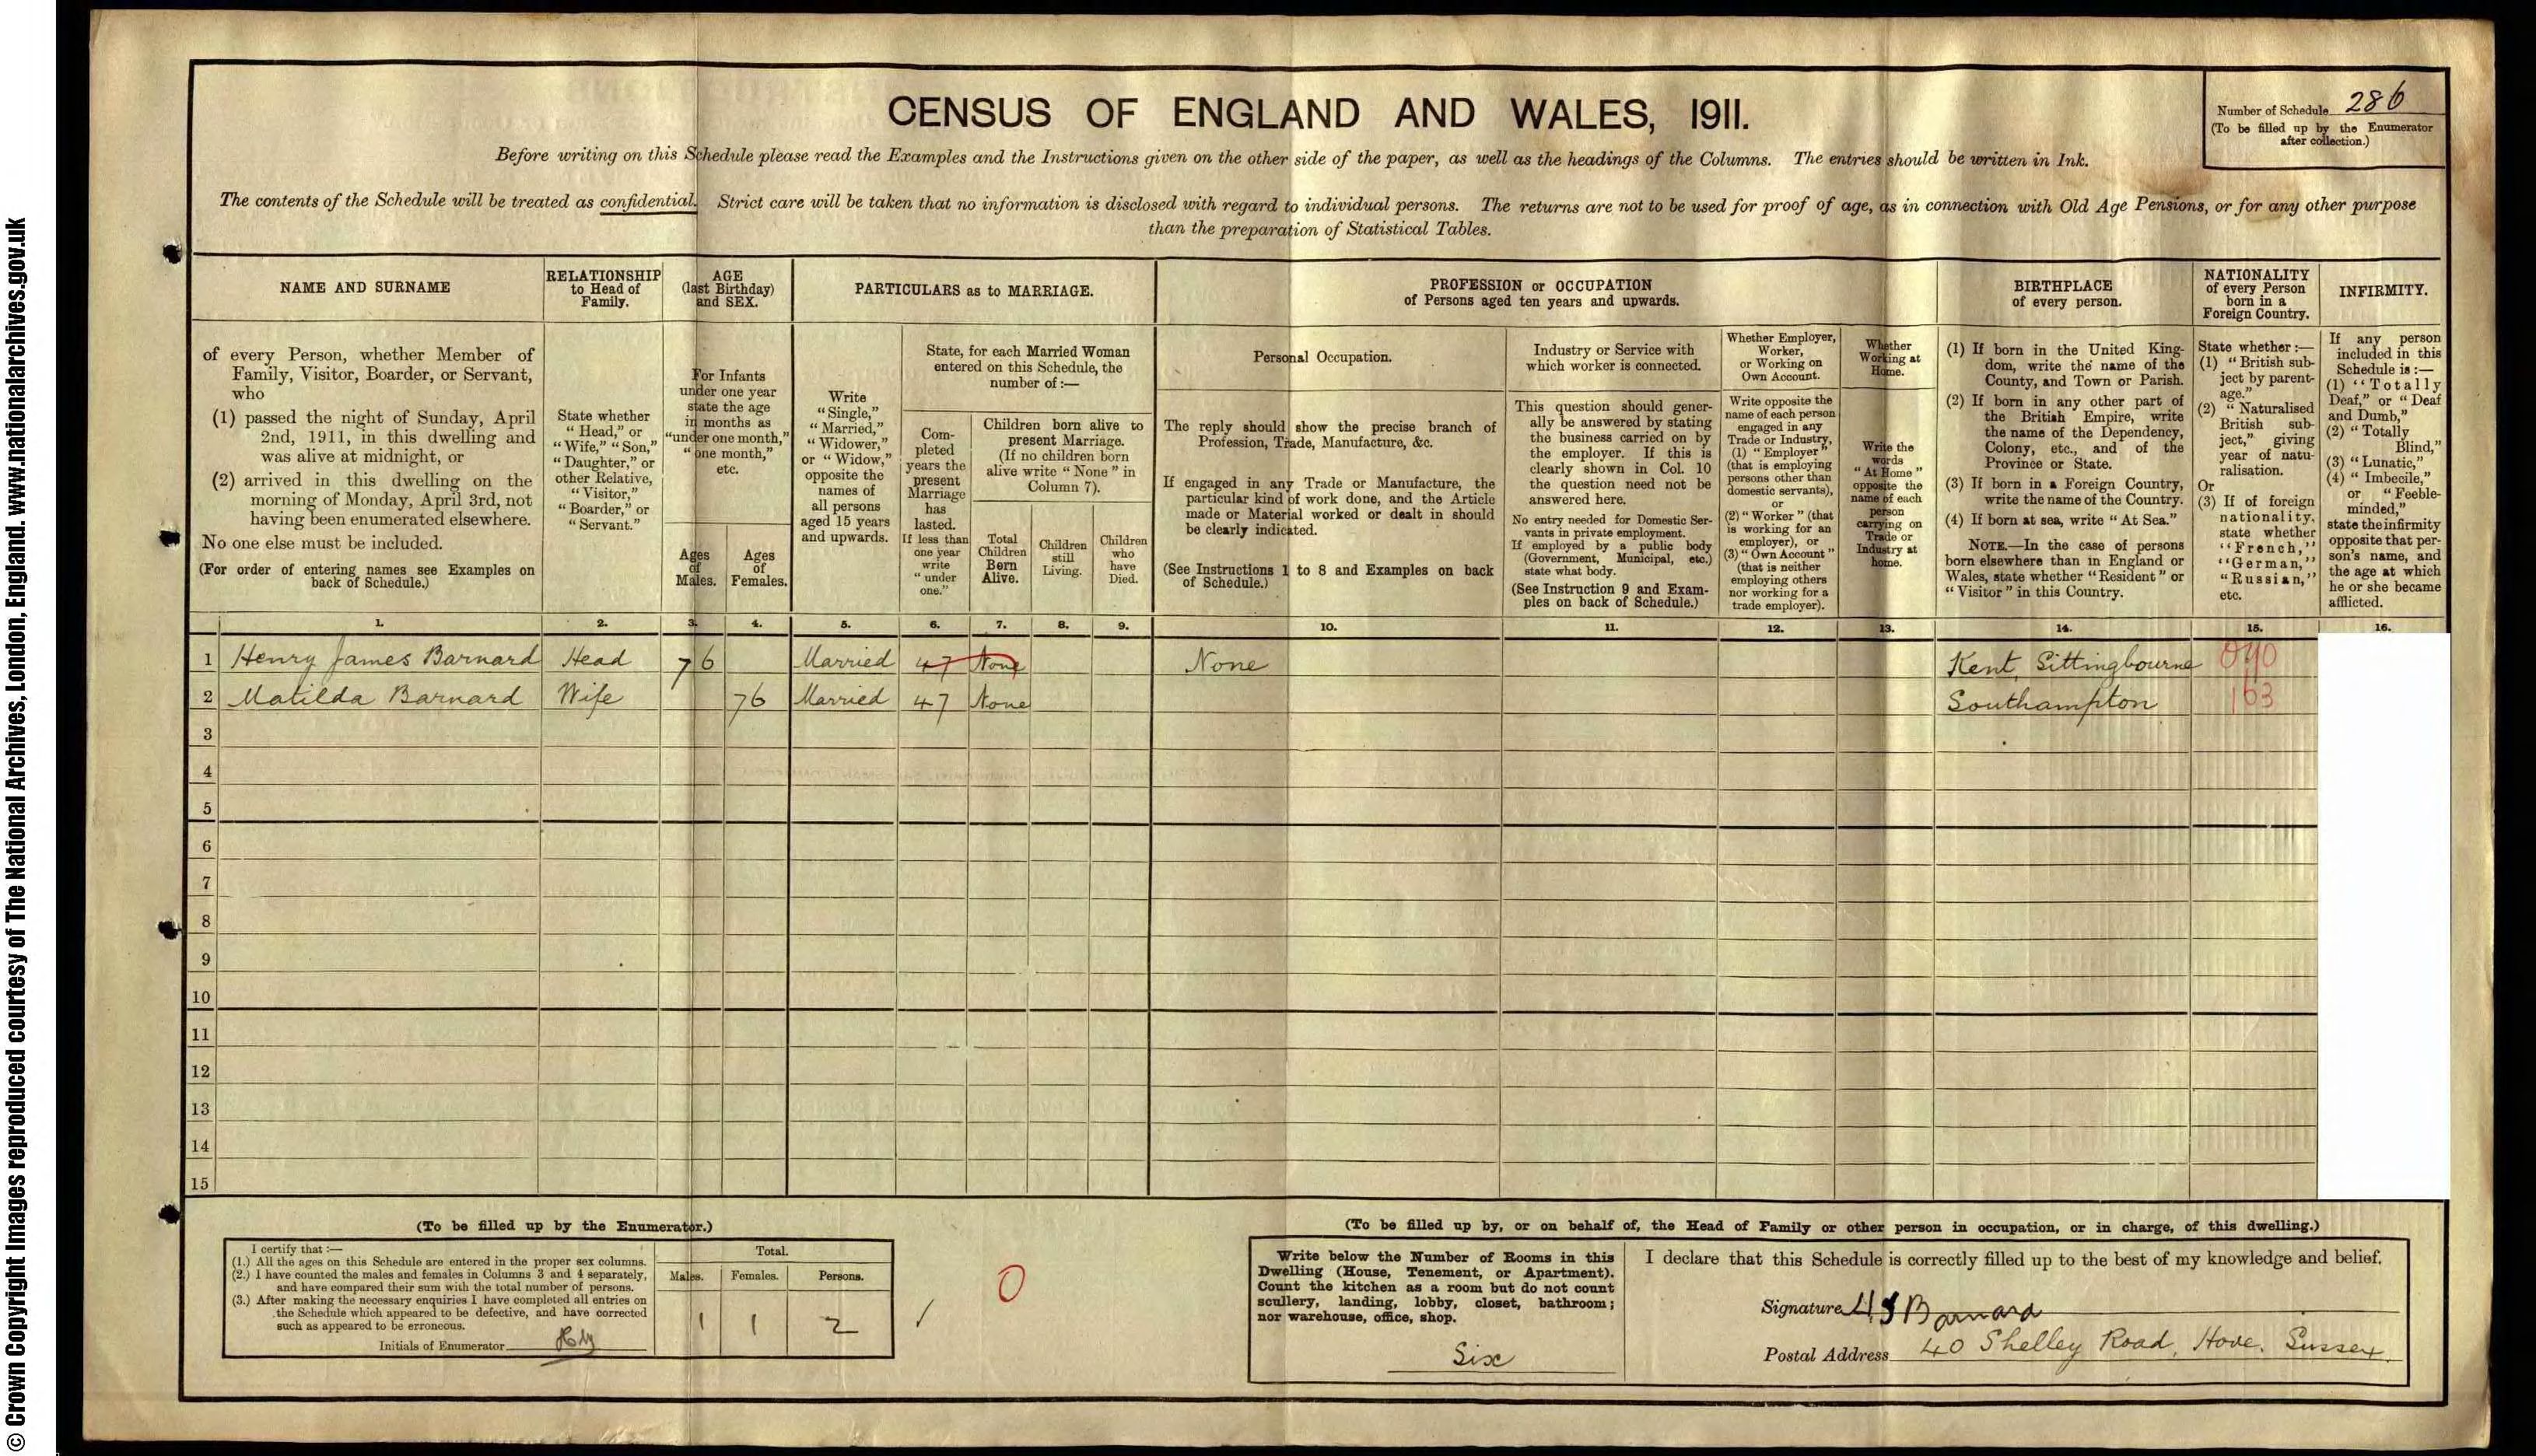 CENSUS OF ENGLAND AND WALES, 1911.
Number of Schedule 286
(To be filled up by the Enumerator
after collection.)
Before writing on this Schedule please read the Examples and the Instructions given on the other side of the paper, as well as the headings of the Columns. The entries should be written in Ink.
The contents of the Schedule will be treated as confidential. Strict care will be taken that no information is disclosed with regard to individual persons. The returns are not to be used for proof of age, as in connection with Old Age Pensions, or for any other purpose
than the preparation of Statistical Tables.
NAME AND SURNAME
of every Person, whether Member of
Family, Visitor, Boarder, or Servant,
who
(1) passed the night of Sunday, April
2nd, 1911, in this dwelling and
was alive at midnight, or
(2) arrived in this dwelling on the
morning of Monday, April 3rd, not
having been enumerated elsewhere.
No one else must be included.
(For order of entering names see Examples on
back of Schedule.)
RELATIONSHIP
to Head of
Family.
State whether
"Head," or
"Wife," "Son,"
"Daughter," or
other Relative,
"Visitor,"
"Boarder," or
"Servant."
AGE
(last Birthday)
and SEX.
For Infants
under one year
state the age
in months as
"under one month,"
"one month,"
etc.
Ages
of
Males.
Ages
of
Females.
PARTICULARS as to MARRIAGE.
Write
"Single,"
"Married,"
"Widower,"
or "Widow,"
opposite the
names of
all persons
aged 15 years
and upwards.
State, for each Married Woman
entered on this Schedule, the
number of :—
Com-
pleted
years the
present
Marriage
has
lasted.
If less than
one year
write
"under
one."
Children born alive to
present Marriage.
(If no children born
alive write "None" in
Column 7).
Total
Children
Born
Alive.
Children
still
Living.
Children
who
have
Died.
PROFESSION or OCCUPATION
of Persons aged ten years and upwards.
Personal Occupation.
The reply should show the precise branch of
Profession, Trade, Manufacture, &c.
If engaged in any Trade or Manufacture, the
particular kind of work done, and the Article
made or Material worked or dealt in should
be clearly indicated.
(See Instructions 1 to 8 and Examples on back
of Schedule.)
Industry or Service with
which worker is connected.
This question should gener-
ally be answered by stating
the business carried on by
the employer. If this is
clearly shown in Col. 10
the question need not be
answered here.
No entry needed for Domestic Ser-
vants in private employment.
If employed by a public body
(Government, Municipal, etc.)
state what body.
(See Instruction 9 and Exam-
ples on back of Schedule.)
Whether Employer,
Worker,
or Working on
Own Account.
Write opposite the
name of each person
engaged in any
Trade or Industry,
(1) "Employer"
(that is employing
persons other than
domestic servants),
or
(2) "Worker" (that
is working for an
employer), or
(3) "Own Account"
(that is neither
employing others
nor working for a
trade employer).
Whether
Working at
Home.
Write the
words
"At Home"
opposite the
name of each
person
carrying on
Trade or
Industry at
home.
BIRTHPLACE
of every person.
(1) If born in the United King-
dom, write the name of the
County, and Town or Parish.
(2) If born in any other part of
the British Empire, write
the name of the Dependency,
Colony, etc., and of the
Province or State.
(3) If born in a Foreign Country,
write the name of the Country.
(4) If born at sea, write "At Sea."
NOTE.—In the case of persons
born elsewhere than in England or
Wales, state whether "Resident" or
"Visitor" in this Country.
NATIONALITY
of every Person
born in a
Foreign Country.
State whether :—
(1) "British sub-
ject by parent-
age."
(2) "Naturalised
British sub-
ject," giving
year of natu-
ralisation.
Or
(3) If of foreign
nationality,
state whether
"French,"
"German,"
"Russian,"
etc.
INFIRMITY.
If any person
included in this
Schedule is :—
(1) "Totally
Deaf," or "Deaf
and Dumb,"
(2) "Totally
Blind,"
(3) "Lunatic,"
(4) "Imbecile,"
or "Feeble-
minded,"
state the infirmity
opposite that per-
son's name, and
the age at which
he or she became
afflicted.
1. 2. 3. 4. 5. 6. 7. 8. 9. 10. 11. 12. 13. 14. 15. 16.
1 Henry James Barnard Head 76 Married 47 None None Kent, Sittingbourne 040
2 Matilda Barnard Wife 76 Married 47 None Southampton 163
3
4
5
6
7
8
9
10
11
12
13
14
15
(To be filled up by the Enumerator.)
I certify that :—
(1.) All the ages on this Schedule are entered in the proper sex columns.
(2.) I have counted the males and females in Columns 3 and 4 separately,
and have compared their sum with the total number of persons.
(3.) After making the necessary enquiries I have completed all entries on
the Schedule which appeared to be defective, and have corrected
such as appeared to be erroneous.
Initials of Enumerator
Total.
Males. Females. Persons.
1 1 2
0
(To be filled up by, or on behalf of, the Head of Family or other person in occupation, or in charge, of this dwelling.)
Write below the Number of Rooms in this
Dwelling (House, Tenement, or Apartment).
Count the kitchen as a room but do not count
scullery, landing, lobby, closet, bathroom;
nor warehouse, office, shop.
Six
I declare that this Schedule is correctly filled up to the best of my knowledge and belief.
Signature H J Barnard
Postal Address 40 Shelley Road, Hove. Sussex.
© Crown Copyright Images reproduced courtesy of The National Archives, London, England. www.nationalarchives.gov.uk